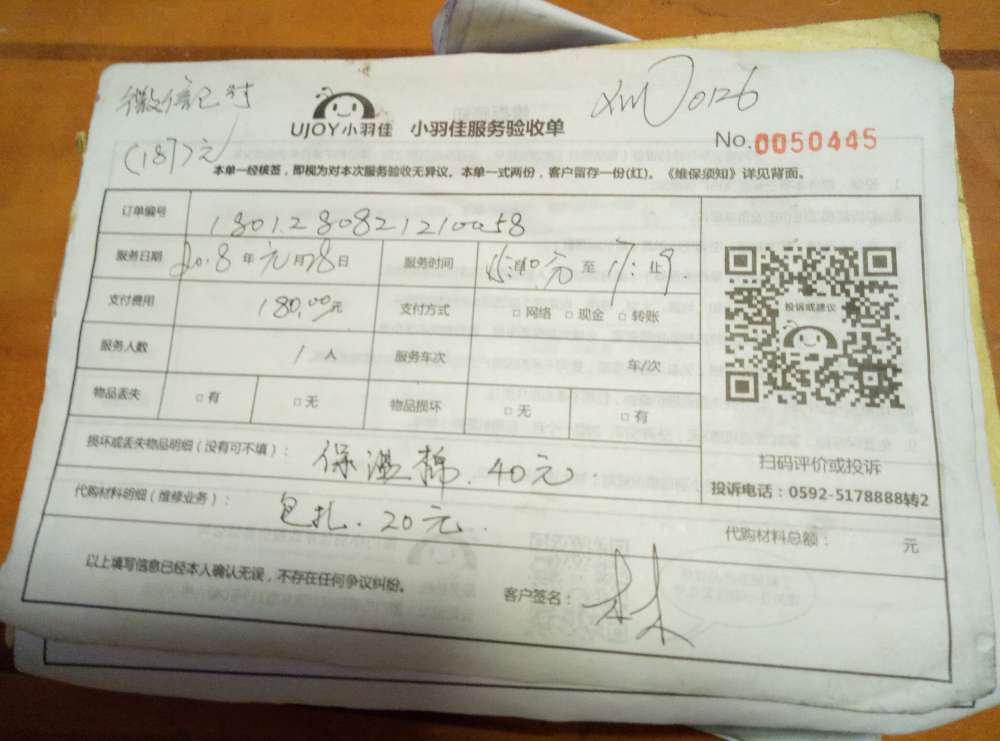 微信已付
(187)元
XM0126
UJOY小羽佳 小羽佳服务验收单
No.0050445
本单一经核签，即视为对本次服务验收无异议。本单一式两份，客户留存一份(红)。《维保须知》详见背面。
订单编号 1801280821210058
服务日期 2018年元月28日 服务时间 至 止
支付费用 180.00元 支付方式 □网络 □现金 □转账
服务人数 1人 服务车次 车/次
物品丢失 □有 □无 物品损坏 □无 □有
投诉或建议
扫码评价或投诉
投诉电话：0592-5178888转2
损坏或丢失物品明细（没有可不填）： 保温棉.40元.
代购材料明细（维修业务）： 包扎.20元.
代购材料总额： 元
以上填写信息已经本人确认无误，不存在任何争议纠纷。
客户签名： 林